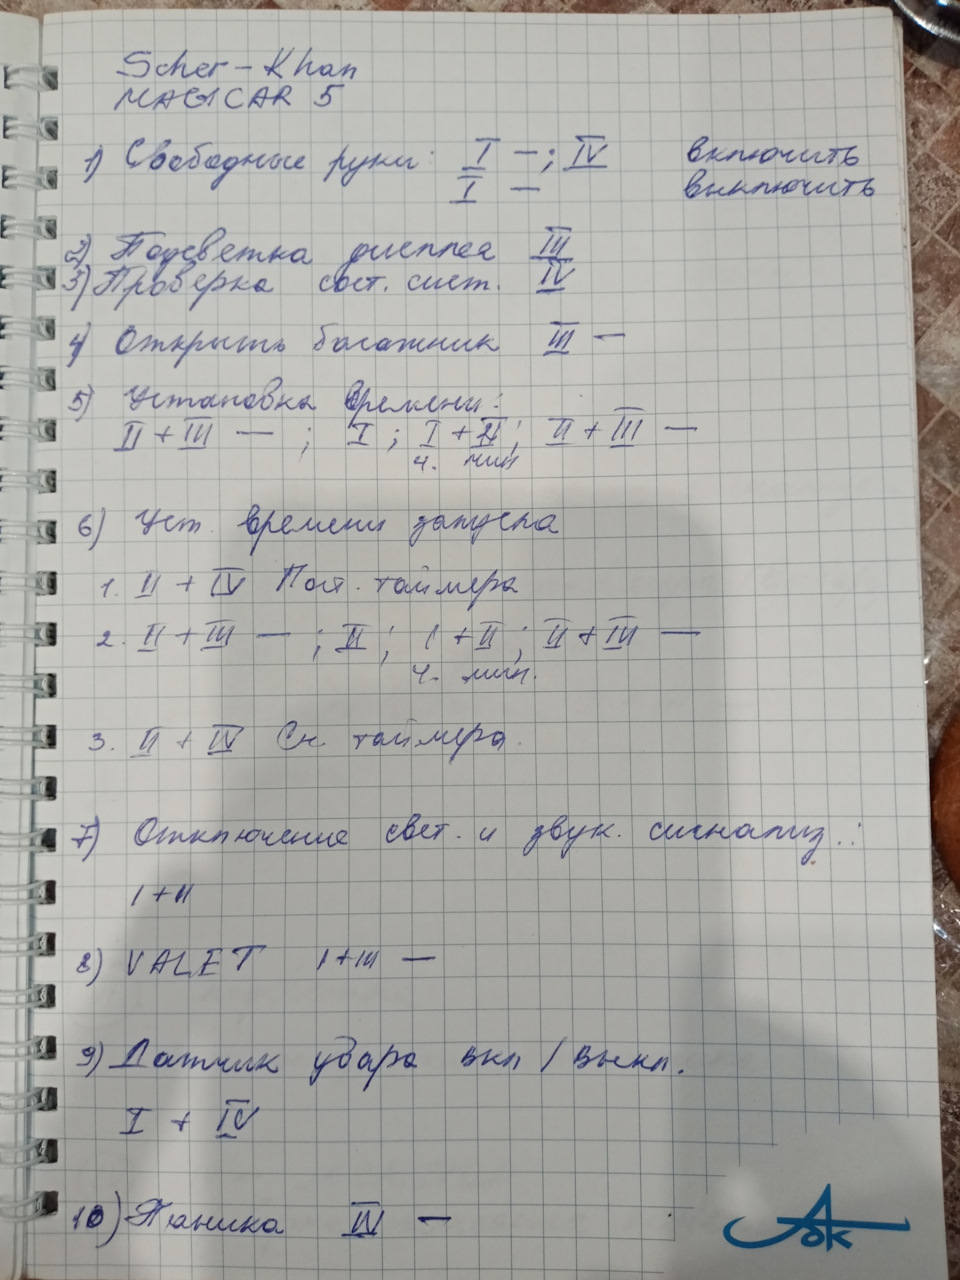 Scher-Khan
MAGICAR 5
1) Свободные руки: I –; IV включить
I – выключить
2) Подсветка дисплея III
3) Проверка сост. сист. IV
4) Открыть багажник III –
5) Установка времени:
II + III — ; I ; I + II ; II + III —
ч. мин
6) Уст. времени запуска
1. II + IV Пост. таймера
2. II + III — ; II ; I + II ; II + III —
ч. мин.
3. II + IV Сн. таймера.
7) Отключение свет. и звук. сигнализ.:
I + II
8) VALET I + III —
9) Датчик удара вкл / выкл.
I + IV
10) Паника IV —